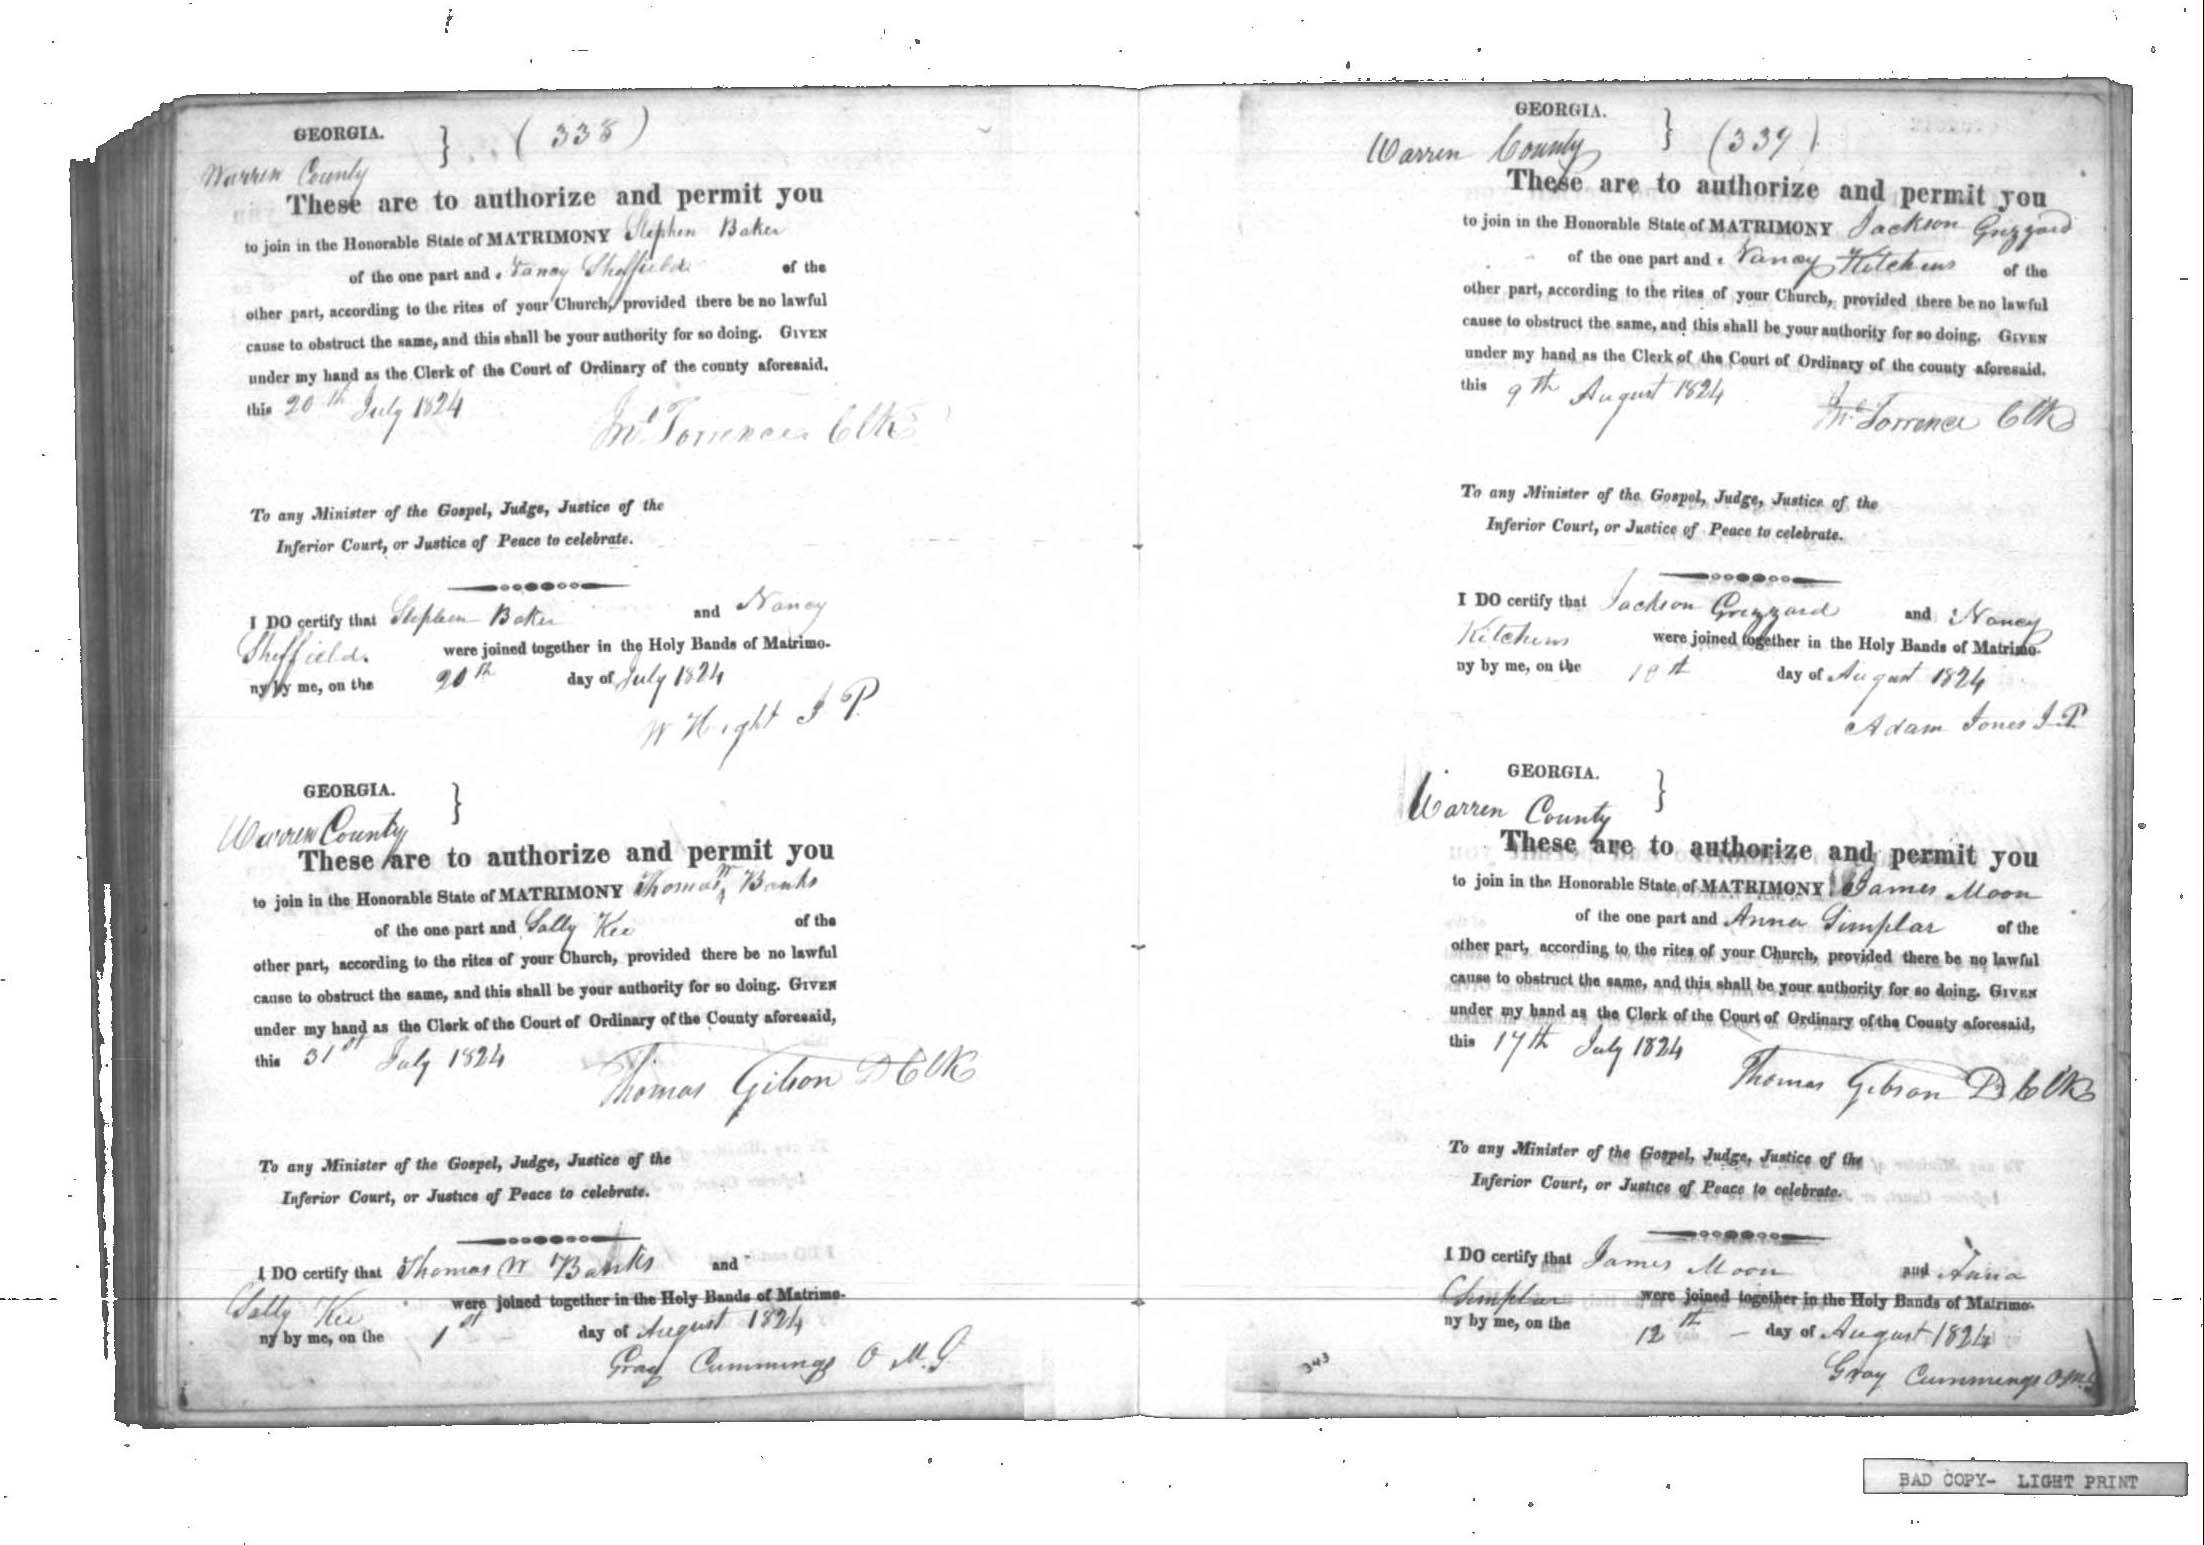 GEORGIA. } (338)
Warren County
These are to authorize and permit you
to join in the Honorable State of MATRIMONY Stephen Baker
of the one part and Nancy Sheffield of the
other part, according to the rites of your Church, provided there be no lawful
cause to obstruct the same, and this shall be your authority for so doing. GIVEN
under my hand as the Clerk of the Court of Ordinary of the county aforesaid,
this 20th July 1824
Jno Torrence Clk
To any Minister of the Gospel, Judge, Justice of the
Inferior Court, or Justice of Peace to celebrate.
I DO certify that Stephen Baker and Nancy
Sheffield were joined together in the Holy Bands of Matrimo-
ny by me, on the 20th day of July 1824
W Hight J P.
GEORGIA. }
Warren County
These are to authorize and permit you
to join in the Honorable State of MATRIMONY Thomas W Banks
of the one part and Sally Kee of the
other part, according to the rites of your Church, provided there be no lawful
cause to obstruct the same, and this shall be your authority for so doing. GIVEN
under my hand as the Clerk of the Court of Ordinary of the County aforesaid,
this 31st July 1824
Thomas Gibson D Clk
To any Minister of the Gospel, Judge, Justice of the
Inferior Court, or Justice of Peace to celebrate.
I DO certify that Thomas W Banks and
Sally Kee were joined together in the Holy Bands of Matrimo-
ny by me, on the 1st day of August 1824
Gray Cummings O M. G.
GEORGIA. } (339)
Warren County
These are to authorize and permit you
to join in the Honorable State of MATRIMONY Jackson Grizzard
of the one part and Nancy Kitchens of the
other part, according to the rites of your Church, provided there be no lawful
cause to obstruct the same, and this shall be your authority for so doing. GIVEN
under my hand as the Clerk of the Court of Ordinary of the county aforesaid.
this 9th August 1824
Jno Torrence Clk
To any Minister of the Gospel, Judge, Justice of the
Inferior Court, or Justice of Peace to celebrate.
I DO certify that Jackson Grizzard and Nancy
Kitchens were joined together in the Holy Bands of Matrimo-
ny by me, on the day of August 1824
Adam Jones J.P.
GEORGIA. }
Warren County
These are to authorize and permit you
to join in the Honorable State of MATRIMONY James Moon
of the one part and Anna Simplar of the
other part, according to the rites of your Church, provided there be no lawful
cause to obstruct the same, and this shall be your authority for so doing. GIVEN
under my hand as the Clerk of the Court of Ordinary of the County aforesaid,
this 17th July 1824
Thomas Gibson D Clk
To any Minister of the Gospel, Judge, Justice of the
Inferior Court, or Justice of Peace to celebrate.
I DO certify that James Moon and Anna
Simplar were joined together in the Holy Bands of Matrimo-
ny by me, on the 12th day of August 1824
Gray Cummings O.M.G
343
BAD COPY- LIGHT PRINT